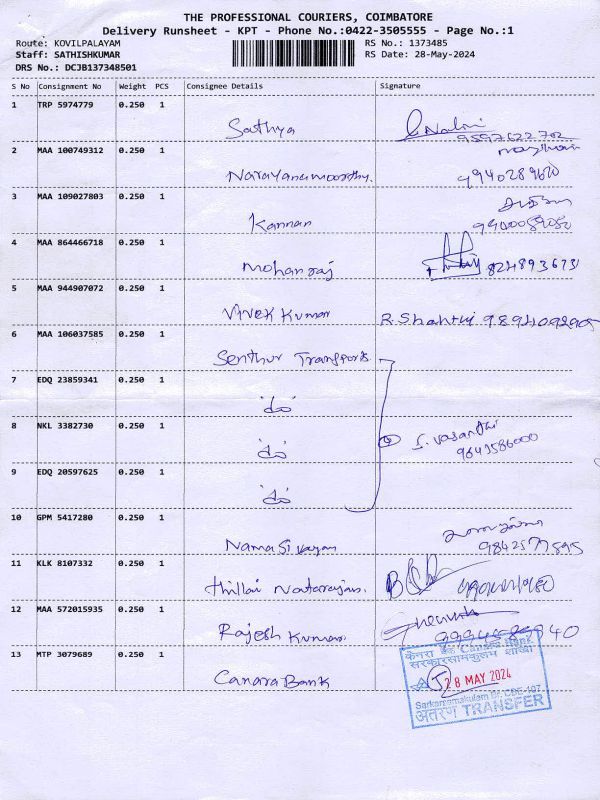 THE PROFESSIONAL COURIERS, COIMBATORE
Delivery Runsheet - KPT - Phone No.:0422-3505555 - Page No.:1
Route: KOVILPALAYAM RS No.: 1373485
Staff: SATHISHKUMAR RS Date: 28-May-2024
DRS No.: DCJB137348501
S No Consignment No Weight PCS Consignee Details Signature
1 TRP 5974779 0.250 1
Sathya Nalini
9597622702
2 MAA 100749312 0.250 1
Narayanamoorthy. 9940289670
3 MAA 109027803 0.250 1
Kannan
4 MAA 864466718 0.250 1
Mohanraj 8248936731
5 MAA 944907072 0.250 1
Vivek Kumar R. Shanthi
6 MAA 106037585 0.250 1
Senthur Transports
7 EDQ 23859341 0.250 1
"do"
8 NKL 3382730 0.250 1
"do" S. Vasanthi
9 EDQ 20597625 0.250 1
"do"
10 GPM 5417280 0.250 1
Namasivayam
11 KLK 8107332 0.250 1
Thillai Natarajan.
12 MAA 572015935 0.250 1
Rajesh Kumar
13 MTP 3079689 0.250 1
केनरा बैंक Canara Bank
सरकारसामकुलम शाखा
28 MAY 2024
Canara Bank
Sarkarsamakulam Br. CBE-107
अंतरण TRANSFER